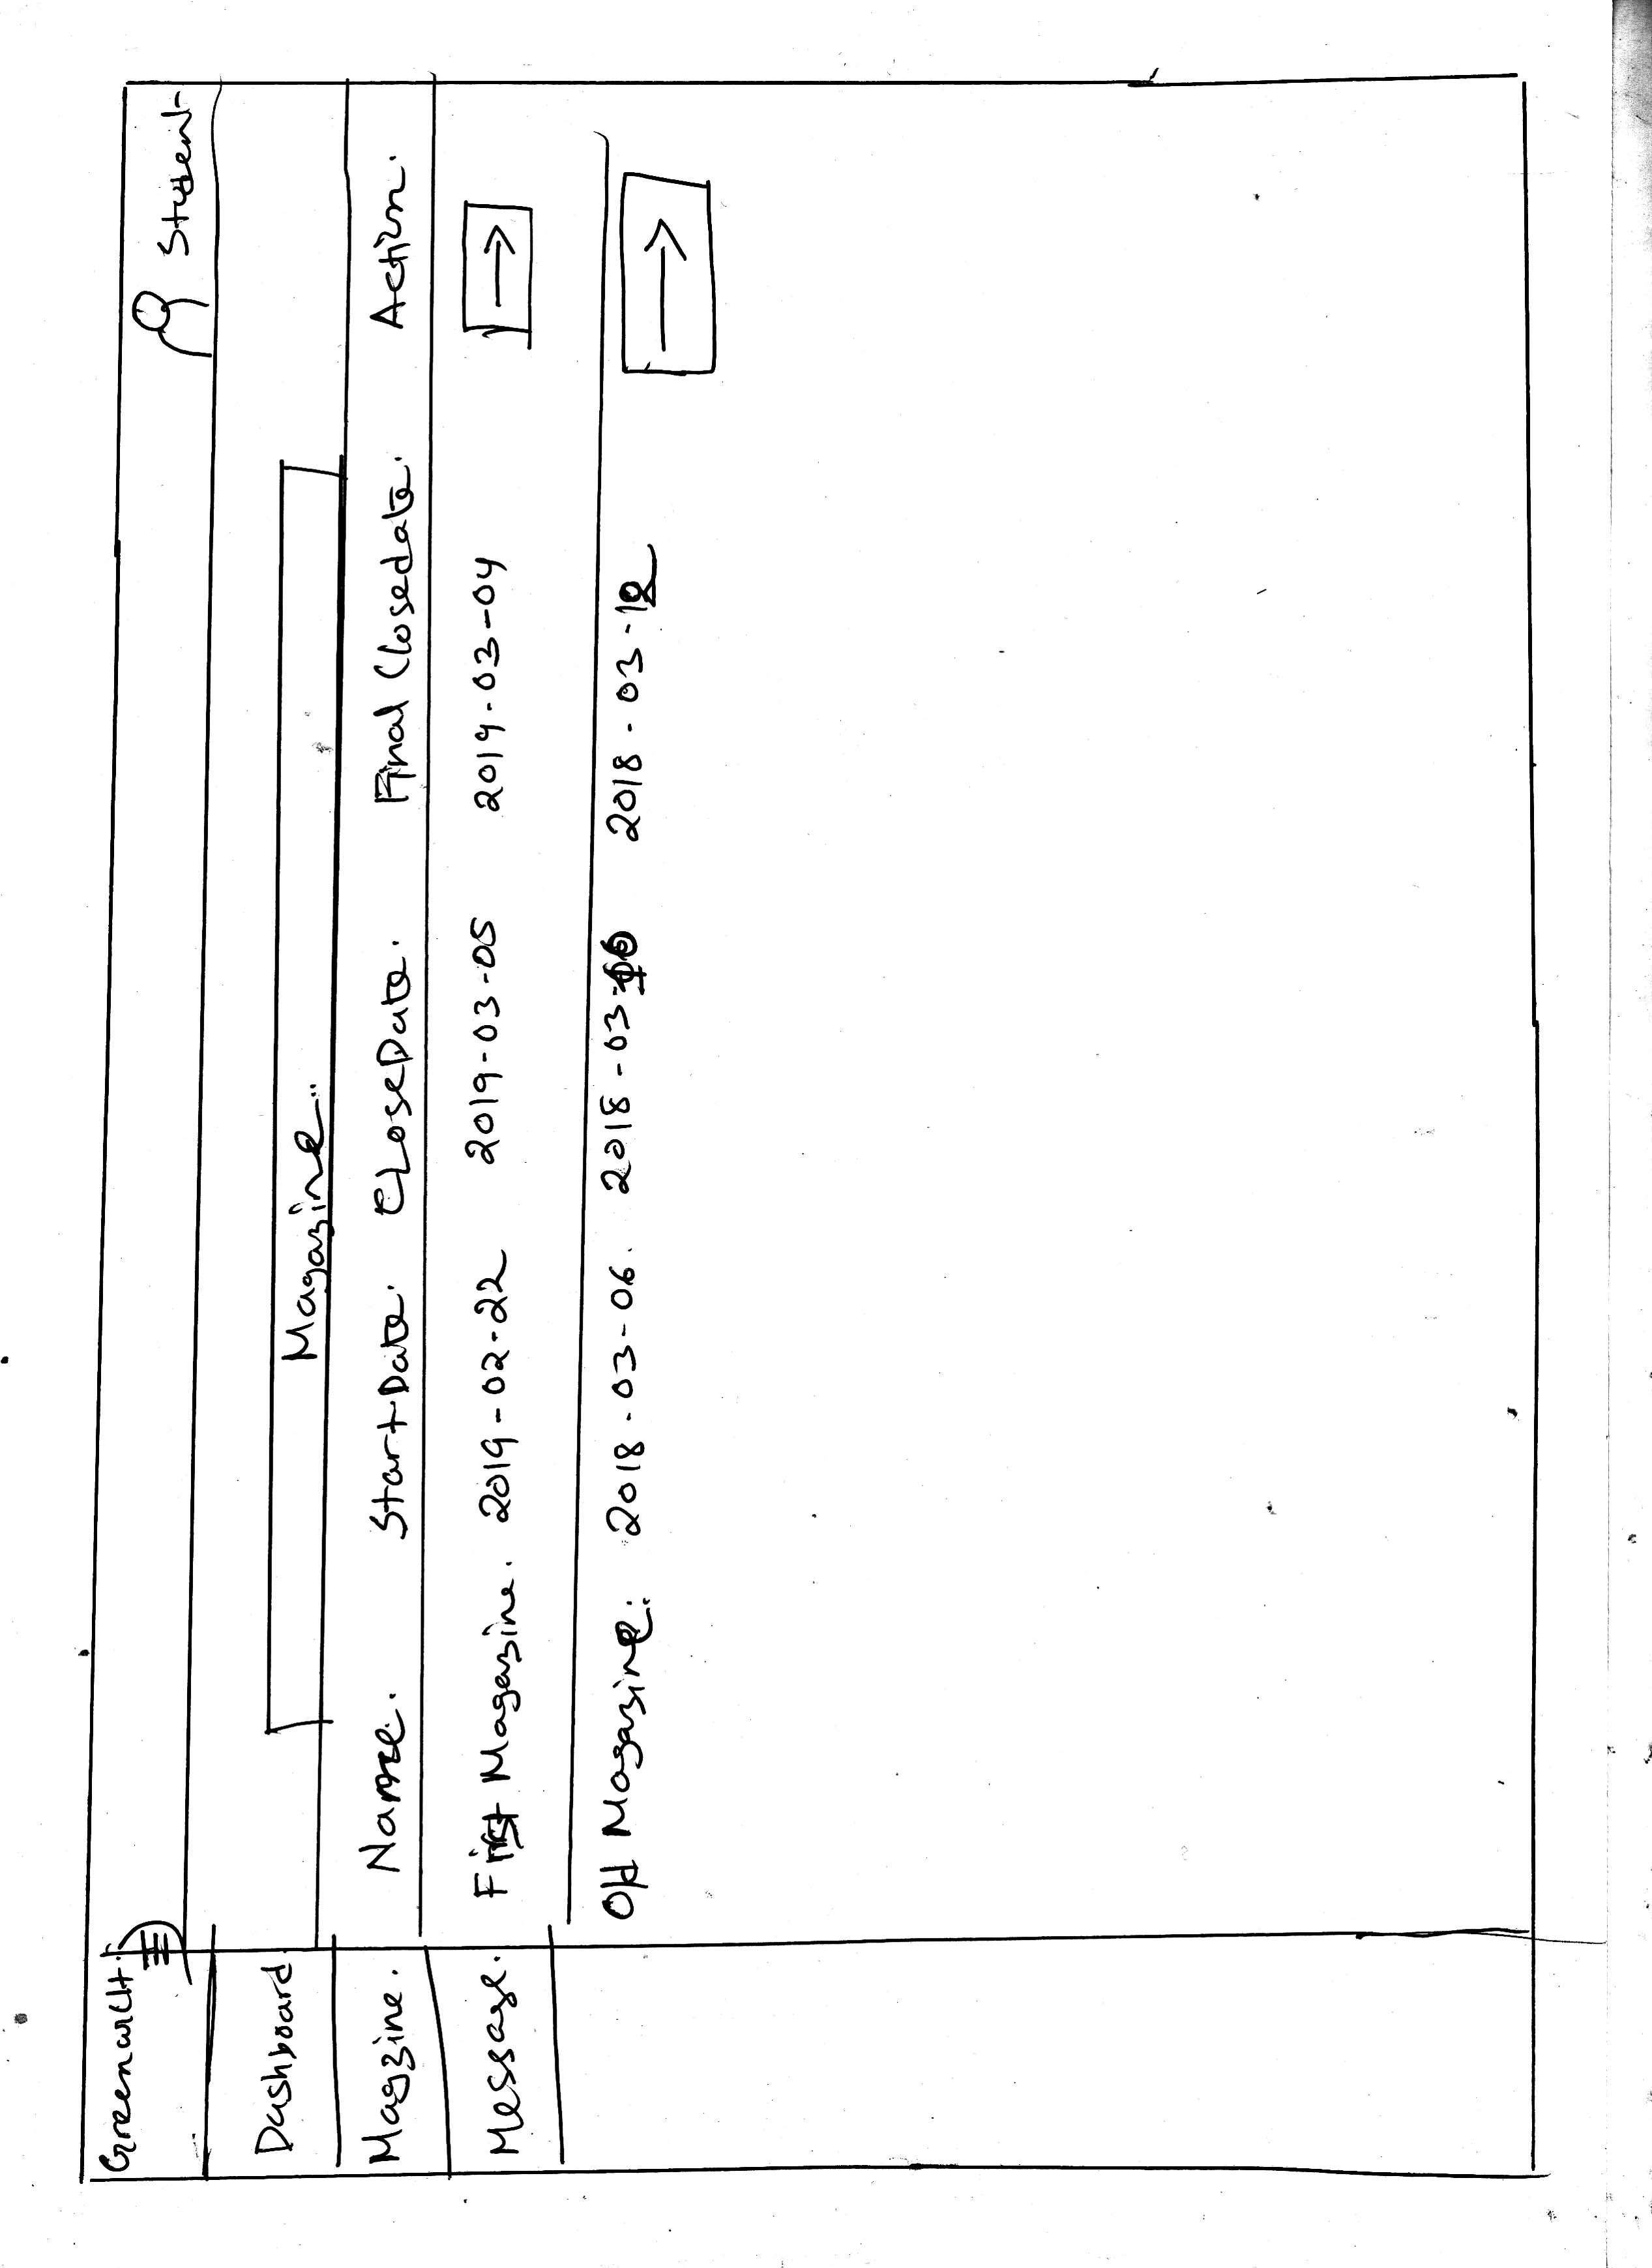 Student
Dashboard
Magzine.
Message.
Magazine..
Name. Start Date. CLose Date. Final Closedate. Action.
First Magazine. 2019-02-22 2019-03-05 2019-03-04
Old Magazine. 2018-03-06. 2018-03- 2018-03-